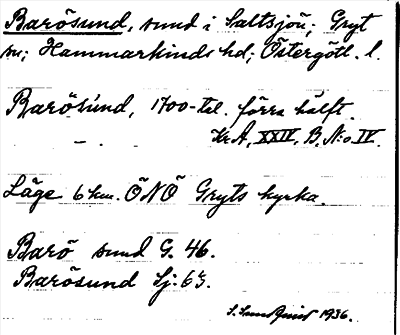 Barösund, sund i Saltsjön; Gryt
sn; Hammarkinds hd; Östergötl. l.
Barösund, 1700-tal. förra hälft.
Kr.A, XXIV, B, N:o IV.
Läge 6 km. ÖNÖ Gryts kyrka.
Barö sund G. 46.
Barösund Sj. 63.
1936.